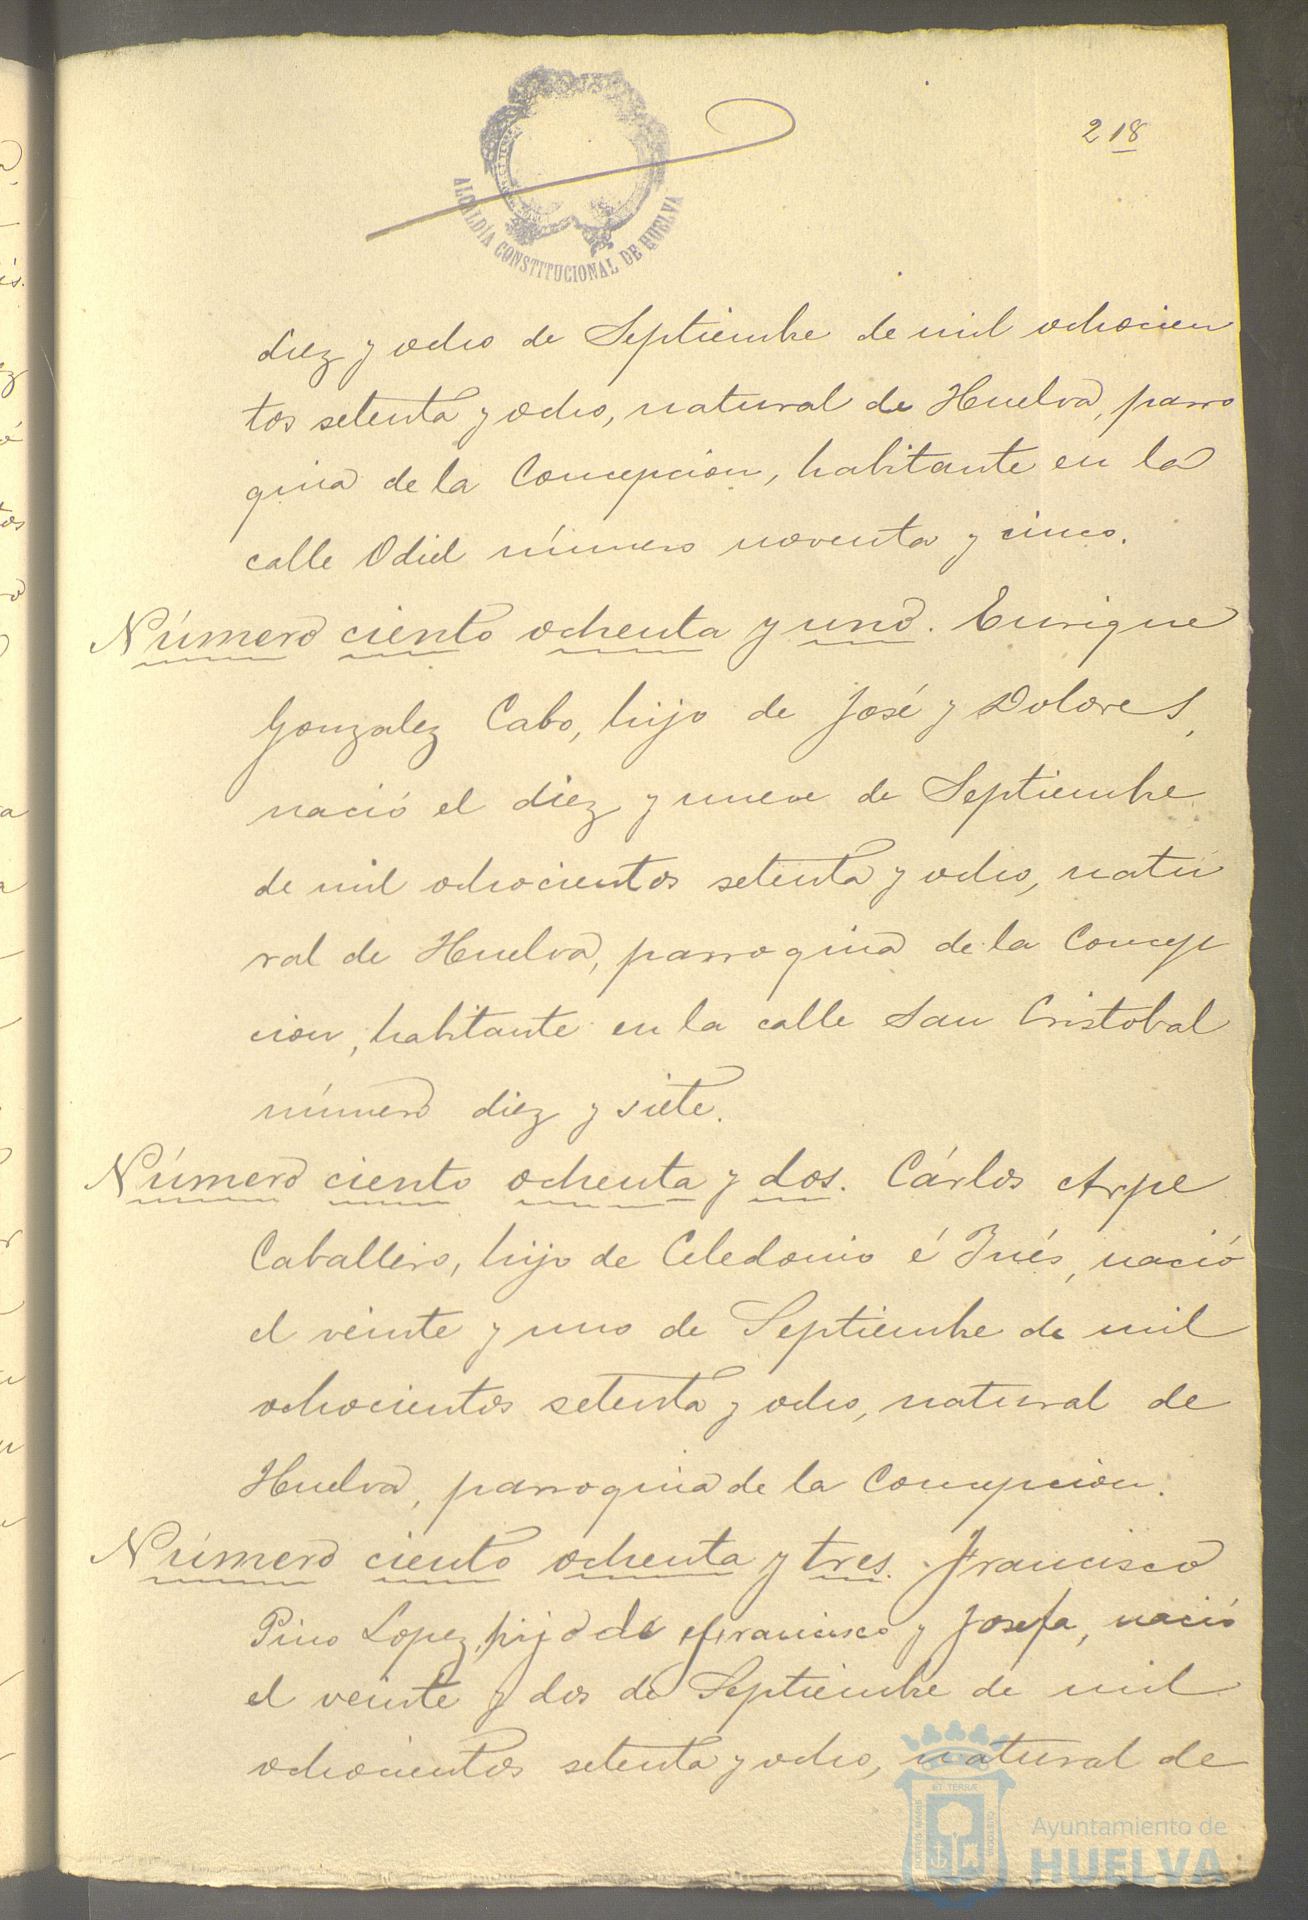 218
ALCALDÍA CONSTITUCIONAL DE HUELVA
diez y ocho de Septiembre de mil ochocien
tos setenta y ocho, natural de Huelva, parro
quia de la Concepcion, habitante en la
calle Odiel número noventa y cinco.
Número ciento ochenta y uno. Enrique
Gonzalez Cabo, hijo de José y Dolores,
nació el diez y nueve de Septiembre
de mil ochocientos setenta y ocho, natu
ral de Huelva, parroquia de la Concep
cion, habitante en la calle San Cristobal
número diez y siete.
Número ciento ochenta y dos. Cárlos Arpe
Caballero, hijo de Celedonio é Inés, nació
el veinte y uno de Septiembre de mil
ochocientos setenta y ocho, natural de
Huelva, parroquia de la Concepcion.
Número ciento ochenta y tres. Francisco
Pino Lopez, hijo de Francisco y Josefa, nació
el veinte y dos de Septiembre de mil
ochocientos setenta y ocho, natural de
Ayuntamiento de
HUELVA